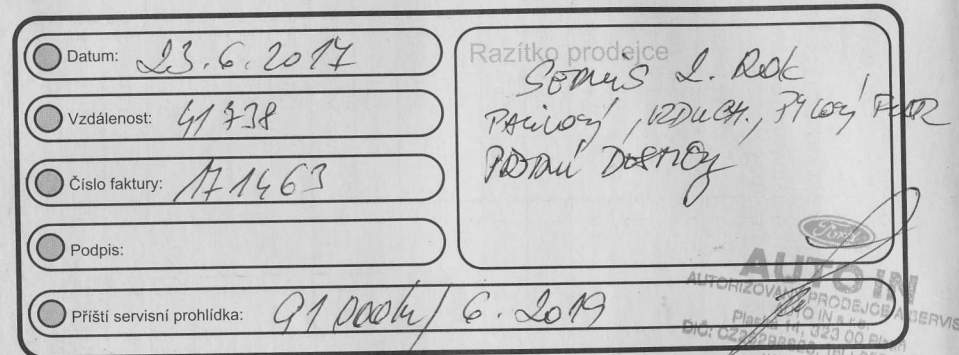 Datum: 23.6.2017
Vzdálenost: 41738
Číslo faktury: 171463
Podpis:
Příští servisní prohlídka: 91 000km / 6.2019
Razítko prodejce
SERVIS 2. ROK
PALIVOVÝ, VZDUCH., PYLOVÝ FILTR
PŘEDNÍ DESTIČKY
Ford
AUTO IN
AUTORIZOVANÝ PRODEJCE A SERVIS
AUTO IN s.r.o.
14, 323 00 Plzeň
DIČ: